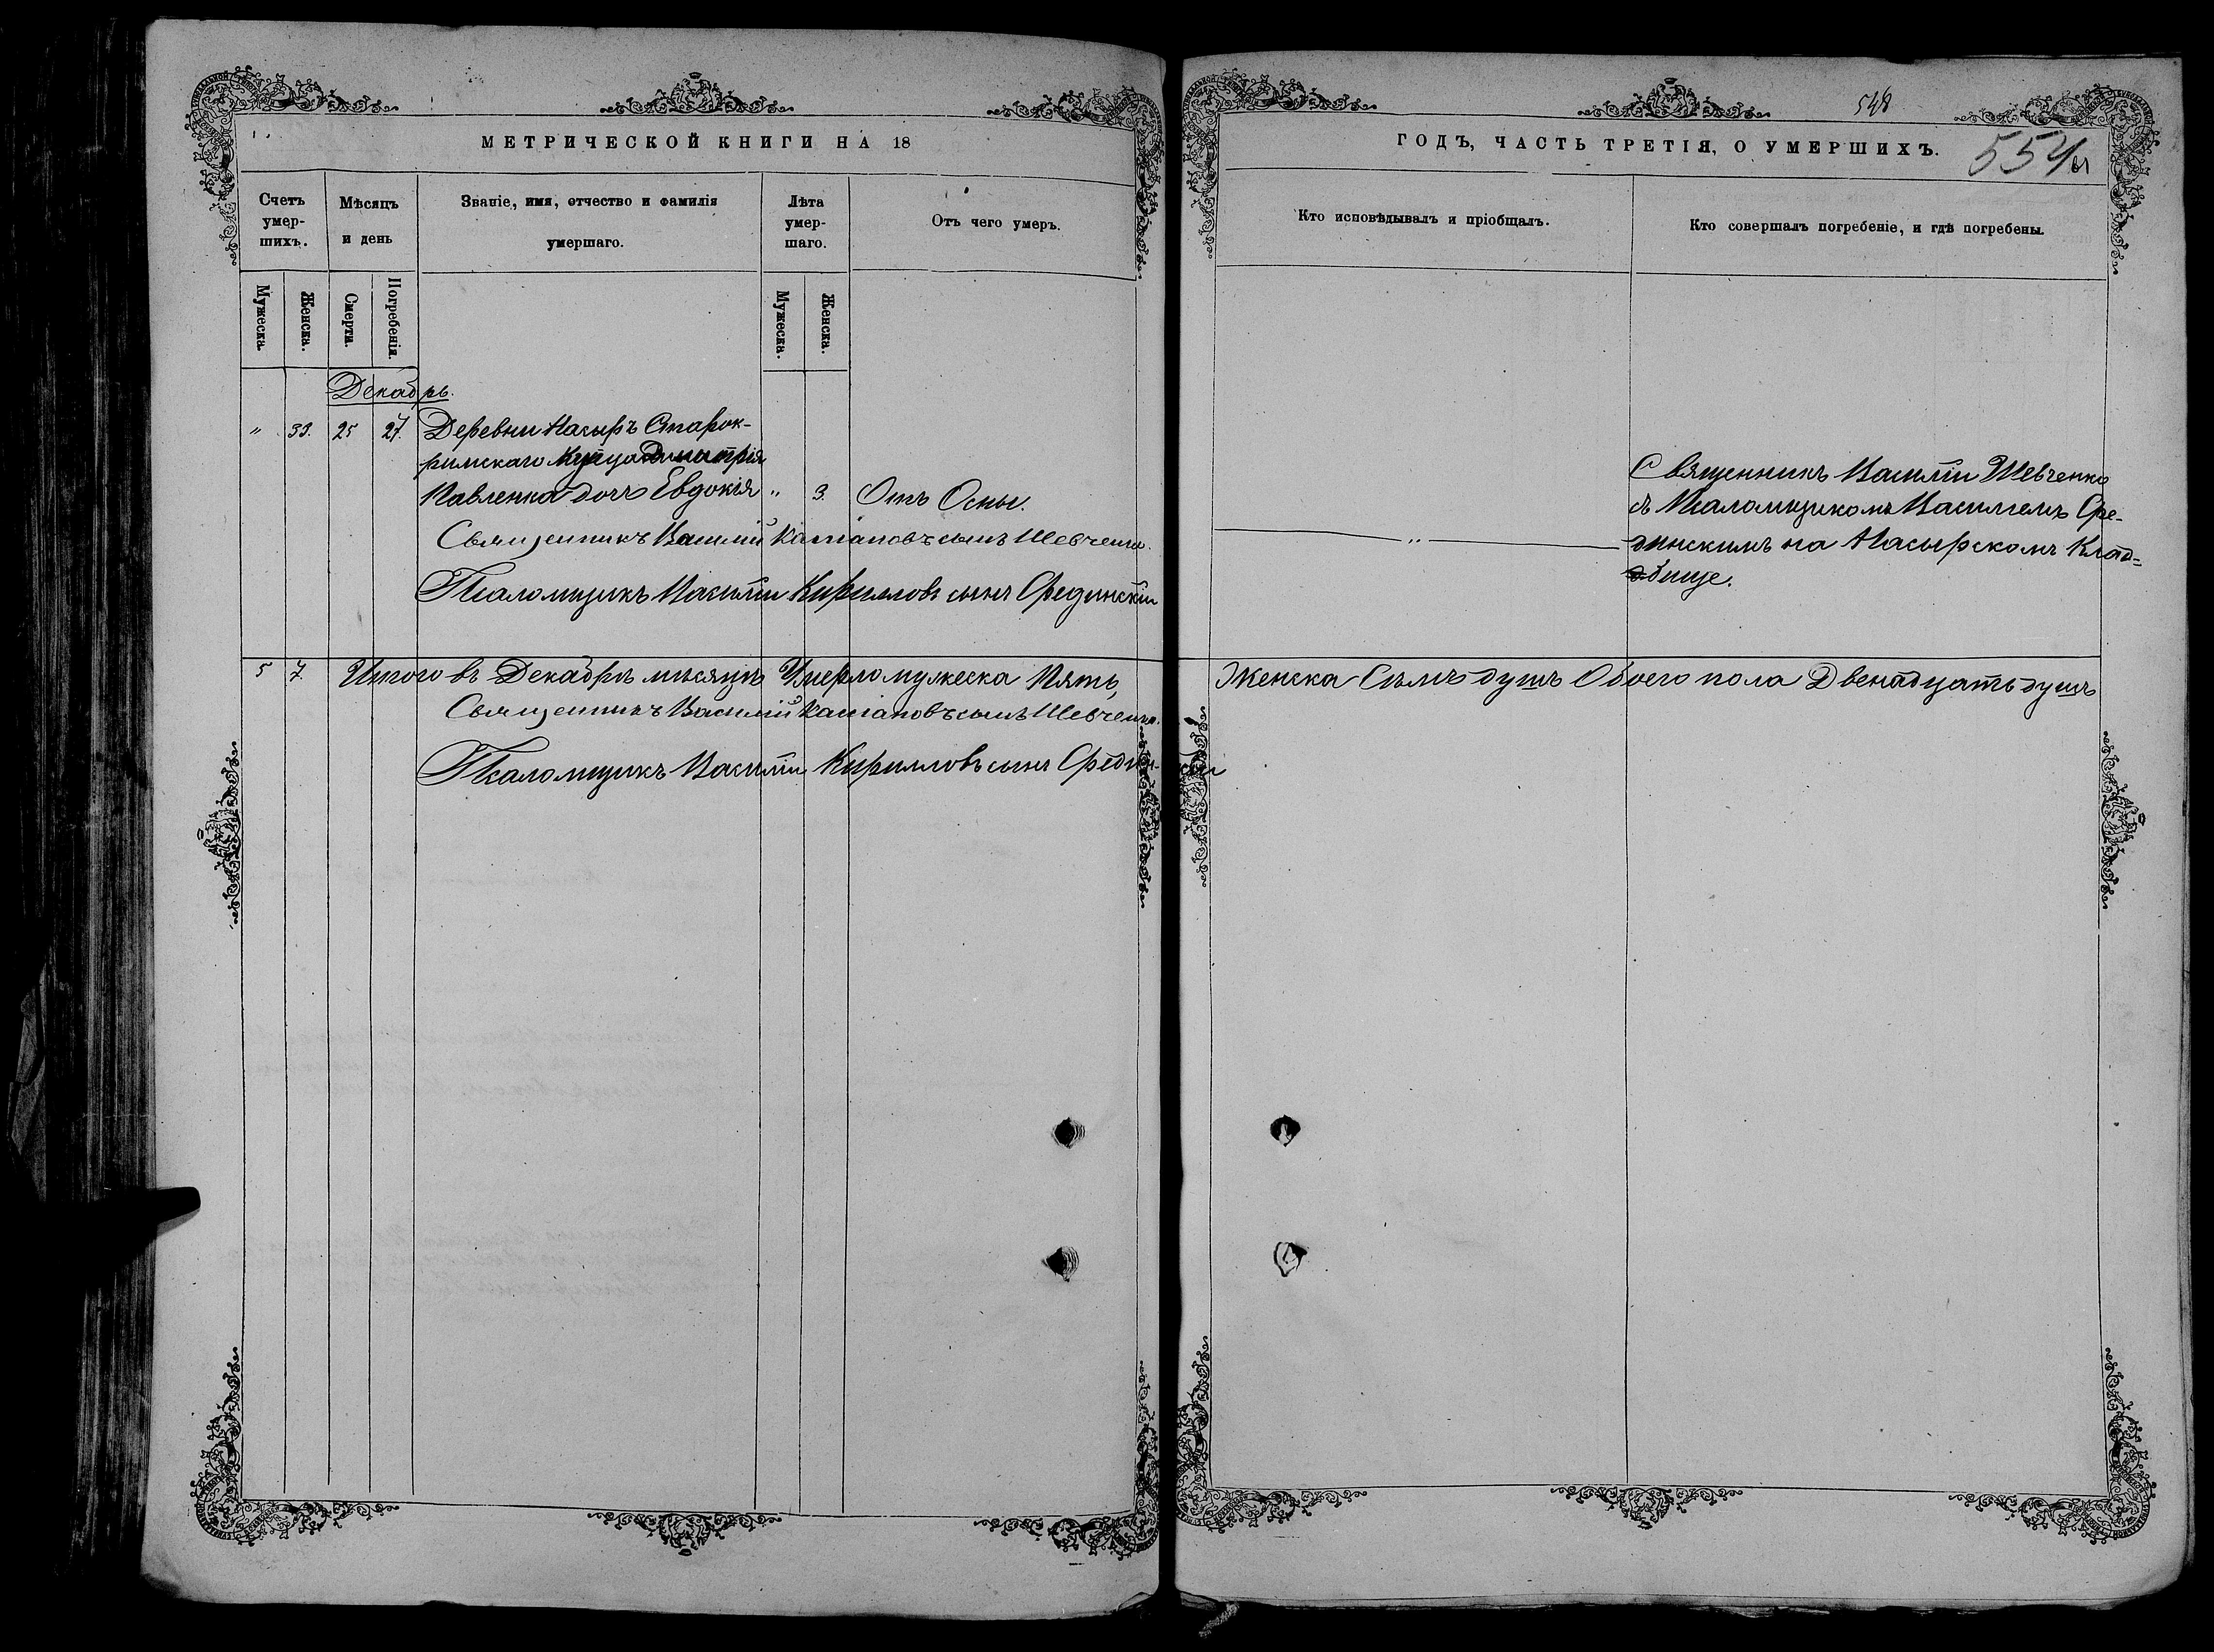 МЕТРИЧЕСКОЙ КНИГИ НА 18
Счетъ умерших.
Мѣсяцъ и день
Званіе, имя, отчество и фамилія умершаго.
Лѣта умершаго.
Отъ чего умеръ.
Мужеска.
Женска.
Смерти.
Погребенія.
Мужеска.
Женска.
Декабрь.
" 33. 25 27. Деревни Насыръ Старок-
римскаго Купца Димитрія
Павленка дочь Евдокія " 3. Отъ Оспы.
Священникъ Василій Касіановъ сынъ Шевченко.
Псаломщикъ Василій Кирилловъ сынъ Срединскій
5 7. Итого въ Декабрѣ мѣсяцѣ Умерло мужеска Пять,
Священникъ Василій Касіановъ сынъ Шевченко.
Псаломщикъ Василій Кирилловъ сынъ Срединскій
548
554
ГОДЪ, ЧАСТЬ ТРЕТІЯ, О УМЕРШИХЪ.
Кто исповѣдывалъ и пріобщалъ.
Кто совершалъ погребеніе, и гдѣ погребены.
Священникъ Василій Шевченко
съ Псаломщикомъ Василіемъ Сре-
"
динскимъ на Насырскомъ Клад-
бище.
Женска Сѣмь душъ Обоего пола Двенадцать душъ